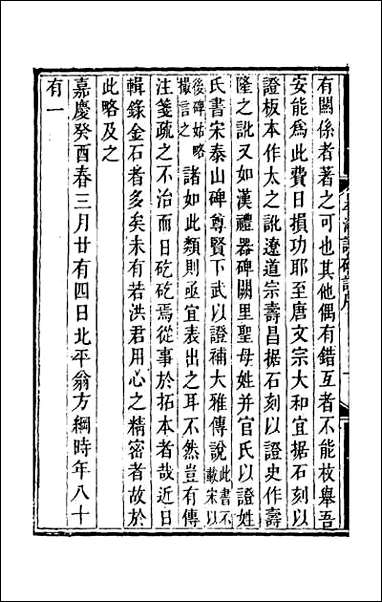 有關係者著之可也其他偶有錯互者不能枚舉吾
安能爲此費日損功耶至唐文宗大和宜据石刻以
證板本作太之訛遼道宗壽昌据石刻以證史作壽
隆之訛又如漢禮器碑闕里聖母姓并官氏以證姓
氏書宋泰山碑尊賢下武以證補大雅傳說此書不載宋以
後碑姑略撮言之諸如此類則亟宜表出之耳不然豈有傳
注箋疏之不治而日矻矻焉從事於拓本者哉近日
輯錄金石者多矣未有若洪君用心之精密者故於
此略及之
嘉慶癸酉春三月廿有四日北平翁方綱時年八十
有一
平津讀碑記序